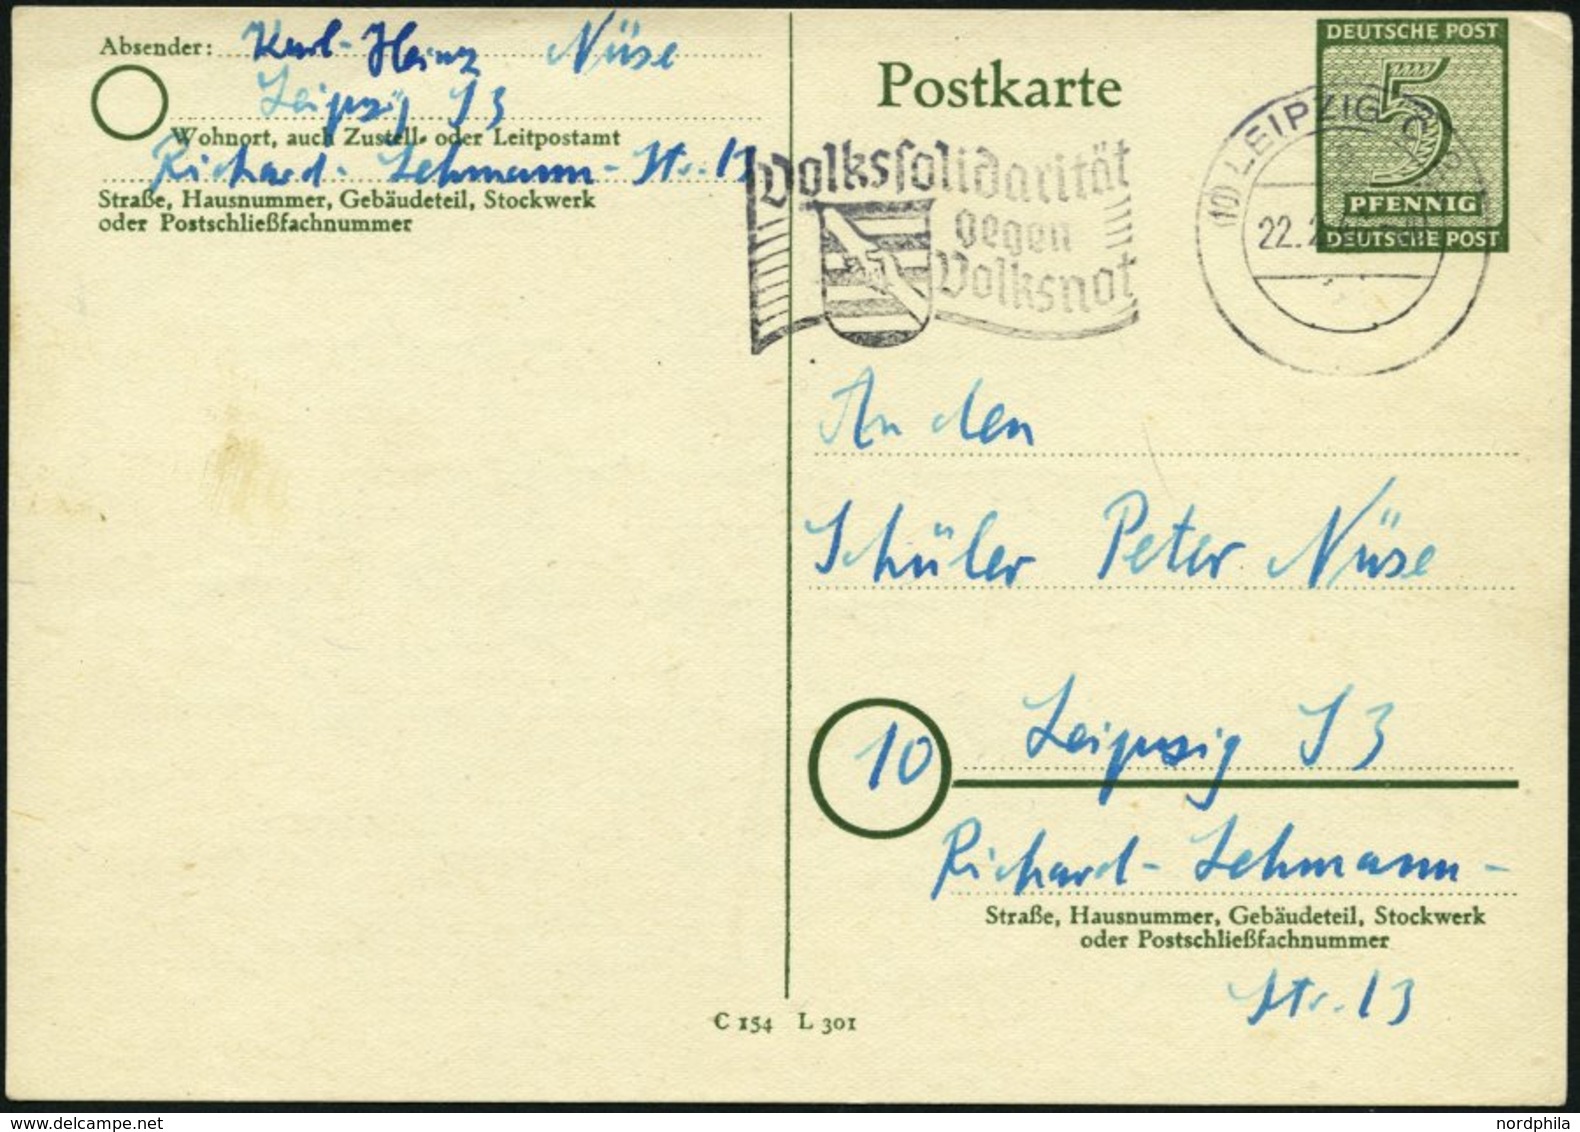 Absender: Karl-Heinz Nüse
Leipzig S3
Wohnort, auch Zustell- oder Leitpostamt
Richard-Lehmann-Str. 13
Straße, Hausnummer, Gebäudeteil, Stockwerk
oder Postschließfachnummer
Postkarte
DEUTSCHE POST
5
PFENNIG
DEUTSCHE POST
(10) LEIPZIG
22.2
Volkssolidarität
gegen
Volksnot
An den
Schüler Peter Nüse
10 Leipzig S3
Richard-Lehmann-
Straße, Hausnummer, Gebäudeteil, Stockwerk
oder Postschließfachnummer
Str. 13
C 154 L 301
nordphila